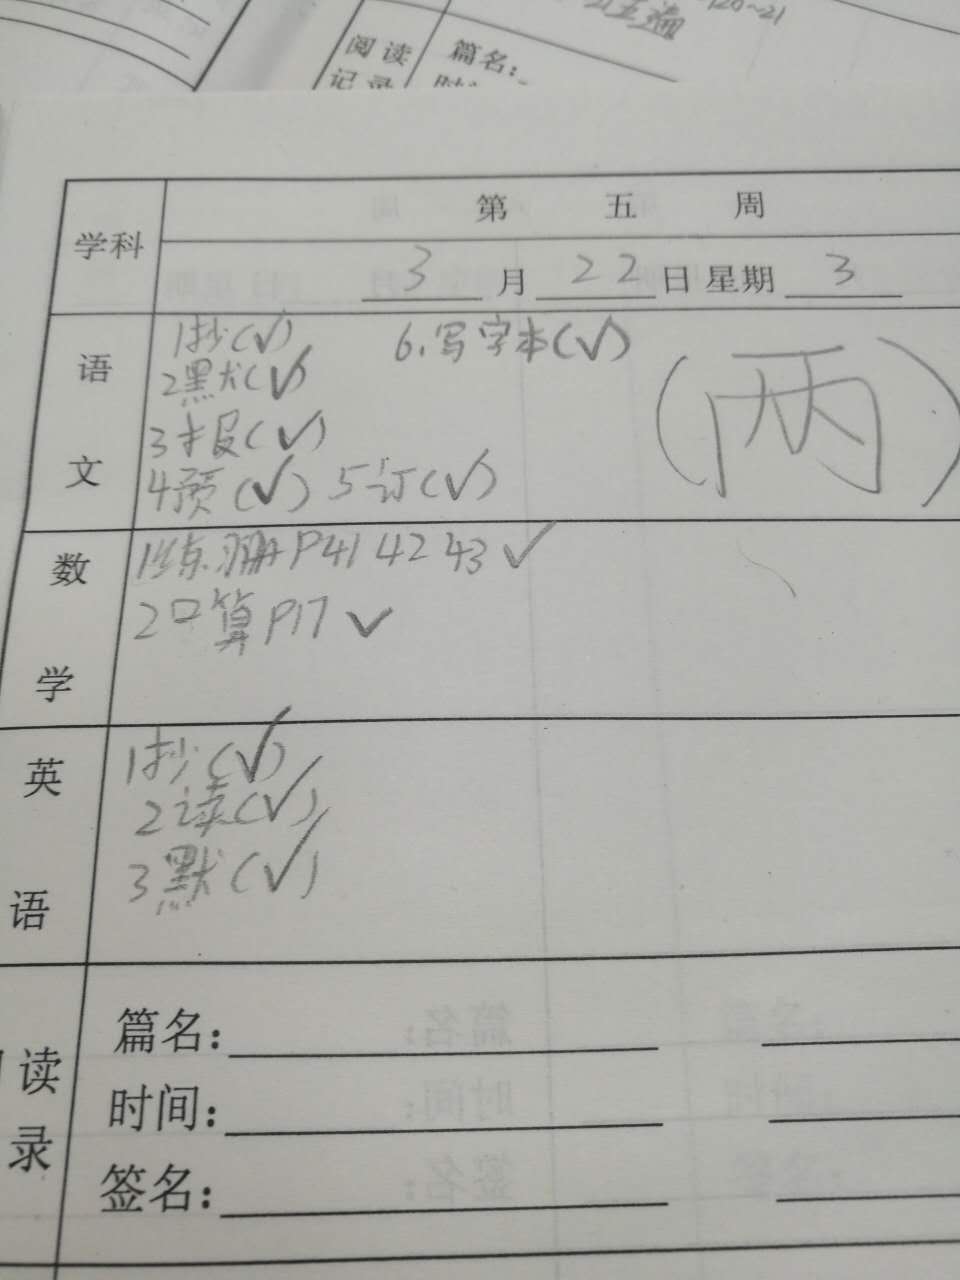 五遍 P20~21
阅读 篇名：
记录
第 五 周
学科
3月22日 星期3
语文
1抄(√) 6.写字本(√)
2默(√)
(两)
3报(√)
4预(√) 5订(√)
数学
1练习册P41 42 43 √
2口算P17 √
英语
1抄(√)
2读(√)
3默(√)
篇名：
读
时间：
录
签名：